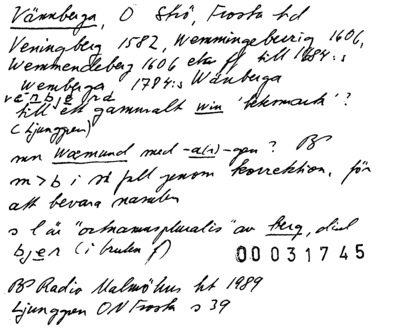 Vännberga, O Strö, Frosta hd
Veningberg 1582, Wemmingeberrig 1606,
Wemmendeberg 1606 etc ff till 1684:s
Wemberga 1784:s Wänberga
vɛnbjɛrd
till ett gammalt win 'betesmark'?
(Ljunggren)
mn Wæmund med -a(r)-gen? BP
m > b i så fall genom korrektion, för
att bevara nasalen
s l är "ortnamnspluralis" av berg, dial
bjer (i bruken f)
00031745
BP Radio Malmöhus ht 1989
Ljunggren ON Frosta s 39